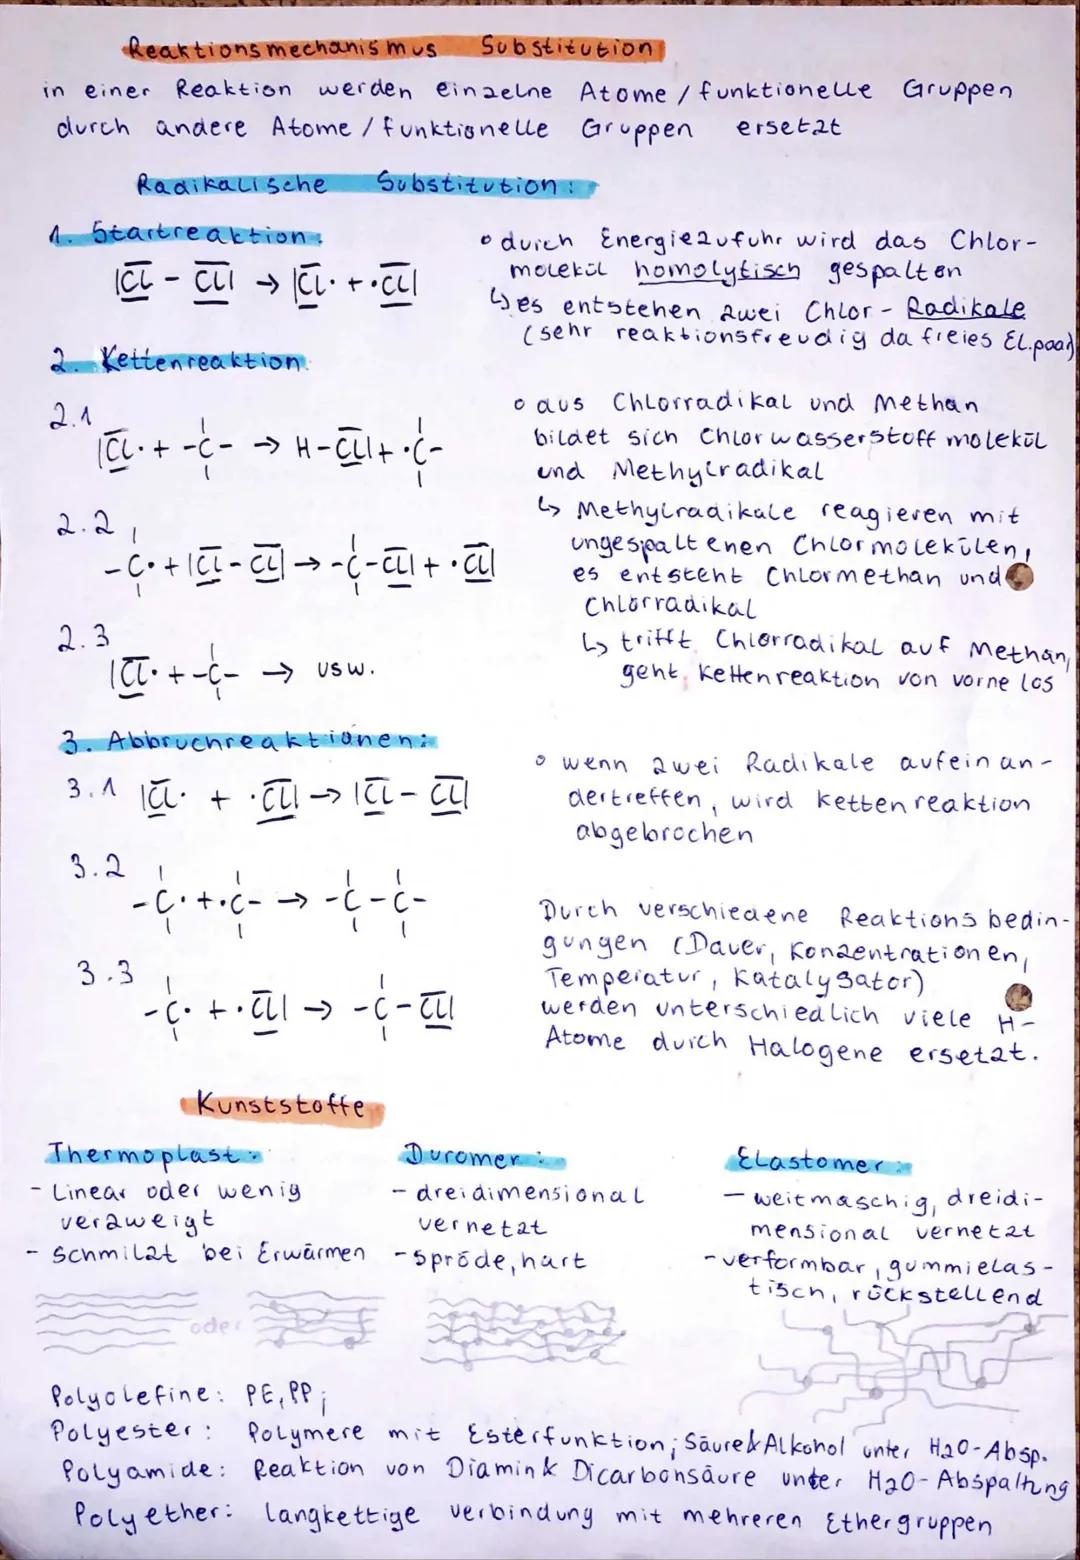 Reaktionsmechanismus Substitution
in einer Reaktion werden einzelne Atome / funktionelle Gruppen
durch andere Atome / funktionelle Gruppen ersetzt
Radikalische Substitution:
1. Startreaktion:
|Cl - Cl| → |Cl· + ·Cl|
• durch Energiezufuhr wird das Chlor-
molekül homolytisch gespalten
↳ es entstehen zwei Chlor - Radikale
(sehr reaktionsfreudig da freies El.paar)
2. Kettenreaktion
2.1
|Cl· + -C- → H-Cl| + ·C-
• aus Chlorradikal und Methan
bildet sich Chlorwasserstoffmolekül
und Methylradikal
2.2
-C· + |Cl - Cl| → -C-Cl| + ·Cl|
↳ Methylradikale reagieren mit
ungespaltenen Chlormolekülen,
es entsteht Chlormethan und
Chlorradikal
2.3
|Cl· + -C- → usw.
↳ trifft Chlorradikal auf Methan,
geht Kettenreaktion von vorne los
3. Abbruchreaktionen:
3.1 |Cl· + ·Cl| → |Cl - Cl|
• wenn zwei Radikale aufeinan-
dertreffen, wird Kettenreaktion
abgebrochen
3.2
-C· + ·C- → -C-C-
3.3
-C· + ·Cl| → -C-Cl|
Durch verschiedene Reaktionsbedin-
gungen (Dauer, Konzentrationen,
Temperatur, Katalysator)
werden unterschiedlich viele H-
Atome durch Halogene ersetzt.
Kunststoffe
Thermoplast:
- Linear oder wenig
verzweigt
- schmilzt bei Erwärmen
oder
Duromer:
- dreidimensional
vernetzt
- spröde, hart
Elastomer:
- weitmaschig, dreidi-
mensional vernetzt
- verformbar, gummielas-
tisch, rückstellend
Polyolefine: PE, PP;
Polyester: Polymere mit Esterfunktion; Säure & Alkohol unter H2O-Absp.
Polyamide: Reaktion von Diamin & Dicarbonsäure unter H2O-Abspaltung
Polyether: langkettige verbindung mit mehreren Ethergruppen